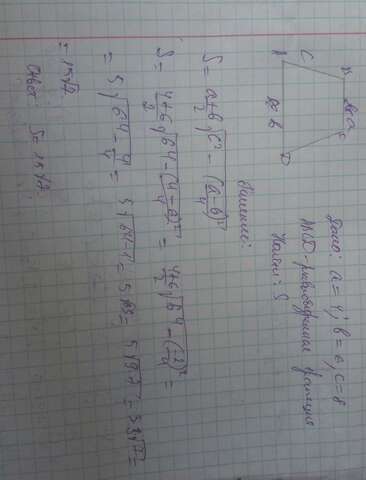 Дано: a = 4; b = 6, c = 8
ABCD - равнобедренная трапеция
Найти: S
B
C
A
D
b
Решение:
S = a+b/2 √c² - (a-b)²/4
S = 4+6/2 √64 - (4-6)²/4 = 4+6/2 √64 - (-2)²/4 =
= 5√64 - 4/4 = 5√64-1 = 5√63 = 5√9·7 = 5·3√7 =
= 15√7
Ответ S = 15√7.